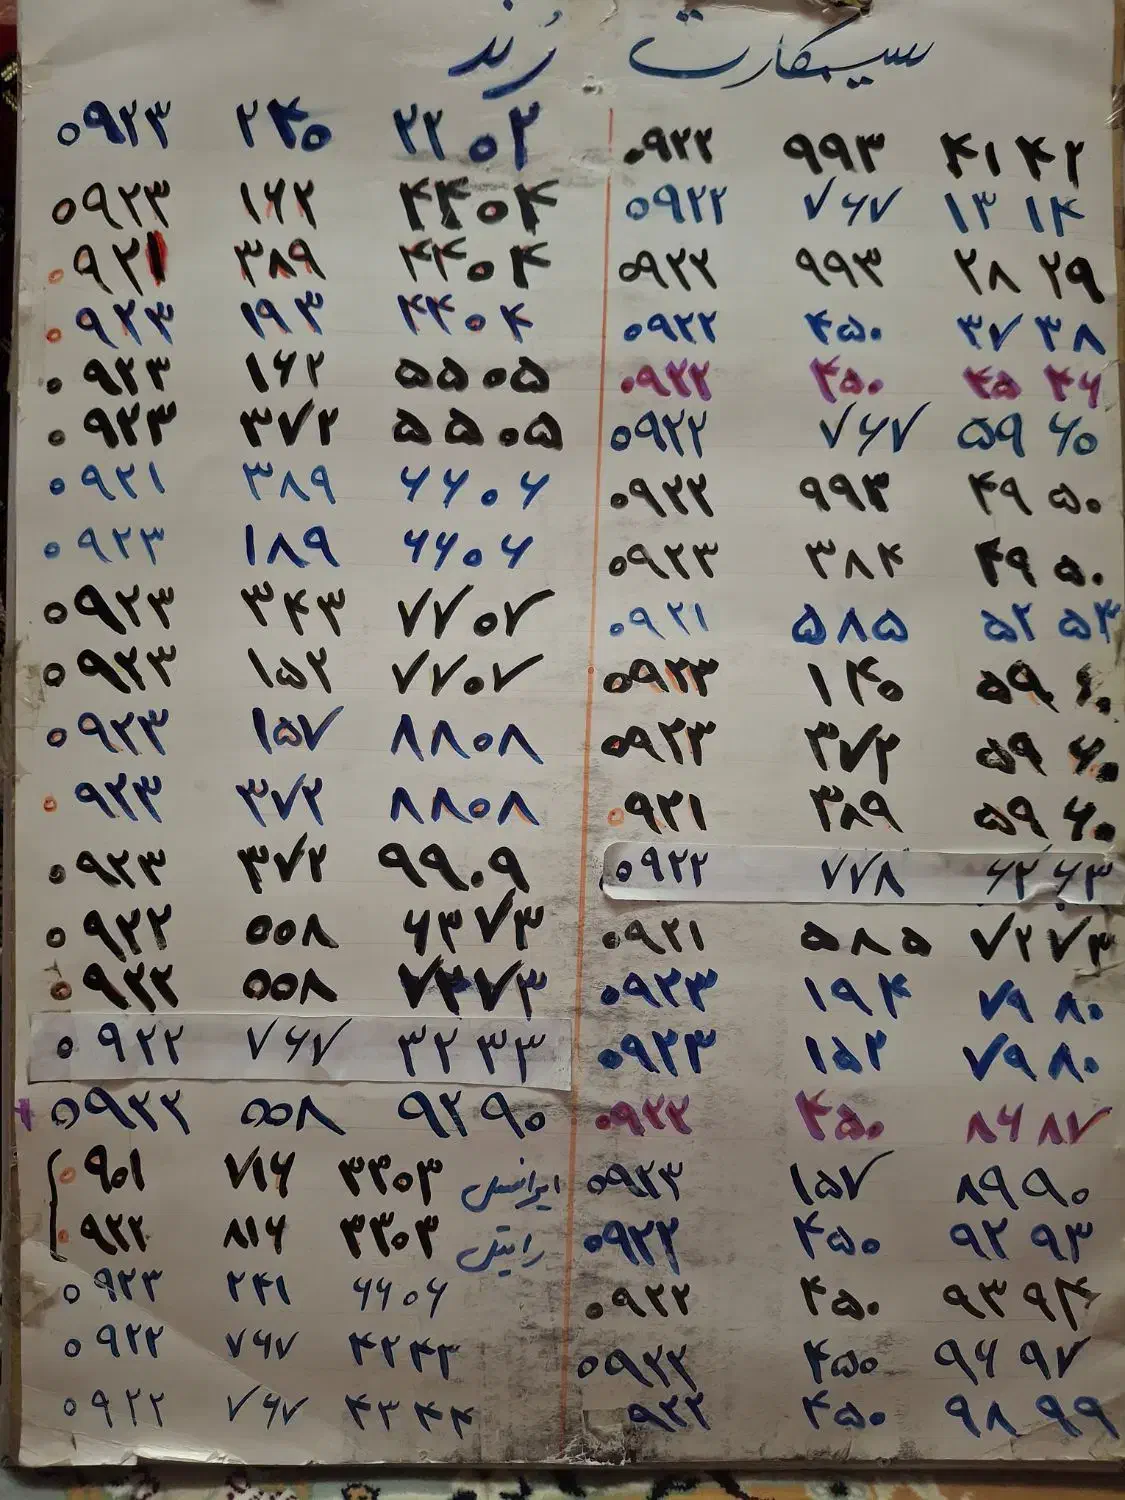 سیمکارت رُند
۰۹۲۳ ۲۴۰ ۲۲۰۲
۰۹۲۳ ۱۶۲ ۴۴۰۴
۰۹۲۱ ۳۸۹ ۴۴۰۴
۰۹۲۳ ۱۹۳ ۴۴۰۴
۰۹۲۳ ۱۶۲ ۵۵۰۵
۰۹۲۳ ۳۷۲ ۵۵۰۵
۰۹۲۱ ۳۸۹ ۶۶۰۶
۰۹۲۳ ۱۸۹ ۶۶۰۶
۰۹۲۳ ۳۴۳ ۷۷۰۷
۰۹۲۳ ۱۵۲ ۷۷۰۷
۰۹۲۳ ۱۵۷ ۸۸۰۸
۰۹۲۳ ۳۷۲ ۸۸۰۸
۰۹۲۳ ۳۷۲ ۹۹۰۹
۰۹۲۲ ۵۵۸ ۶۳۷۳
۰۹۲۲ ۵۵۸ ۷۳۷۳
۰۹۲۲ ۷۶۷ ۳۲۳۳
۰۹۲۲ ۵۵۸ ۹۲۹۰
۰۹۰۱ ۷۱۶ ۳۳۰۳ ایرانسل
۰۹۲۲ ۸۱۶ ۳۳۰۳ رایتل
۰۹۲۳ ۲۴۱ ۶۶۰۶
۰۹۲۲ ۷۶۷ ۴۲۴۳
۰۹۲۲ ۷۶۷ ۴۳۴۴
۰۹۲۲ ۹۹۳ ۴۱۴۲
۰۹۲۲ ۷۶۷ ۱۳۱۴
۰۹۲۲ ۹۹۳ ۲۸۲۹
۰۹۲۲ ۴۵۰ ۳۷۳۸
۰۹۲۲ ۴۵۰ ۴۵۴۶
۰۹۲۲ ۷۶۷ ۵۹۶۰
۰۹۲۲ ۹۹۳ ۴۹۵۰
۰۹۲۳ ۳۸۴ ۴۹۵۰
۰۹۲۱ ۵۸۵ ۵۲۵۳
۰۹۲۳ ۱۴۰ ۵۹۶۰
۰۹۲۳ ۳۷۲ ۵۹۶۰
۰۹۲۱ ۳۸۹ ۵۹۶۰
۰۹۲۲ ۷۷۸ ۶۲۶۳
۰۹۲۱ ۵۸۵ ۷۲۷۳
۰۹۲۳ ۱۹۴ ۷۹۸۰
۰۹۲۳ ۱۵۲ ۷۹۸۰
۰۹۲۲ ۴۵۰ ۸۶۸۷
۰۹۲۳ ۱۵۷ ۸۹۹۰
۰۹۲۲ ۴۵۰ ۹۲۹۳
۰۹۲۲ ۴۵۰ ۹۳۹۴
۰۹۲۲ ۴۵۰ ۹۶۹۷
۹۲۲ ۴۵۰ ۹۸۹۹